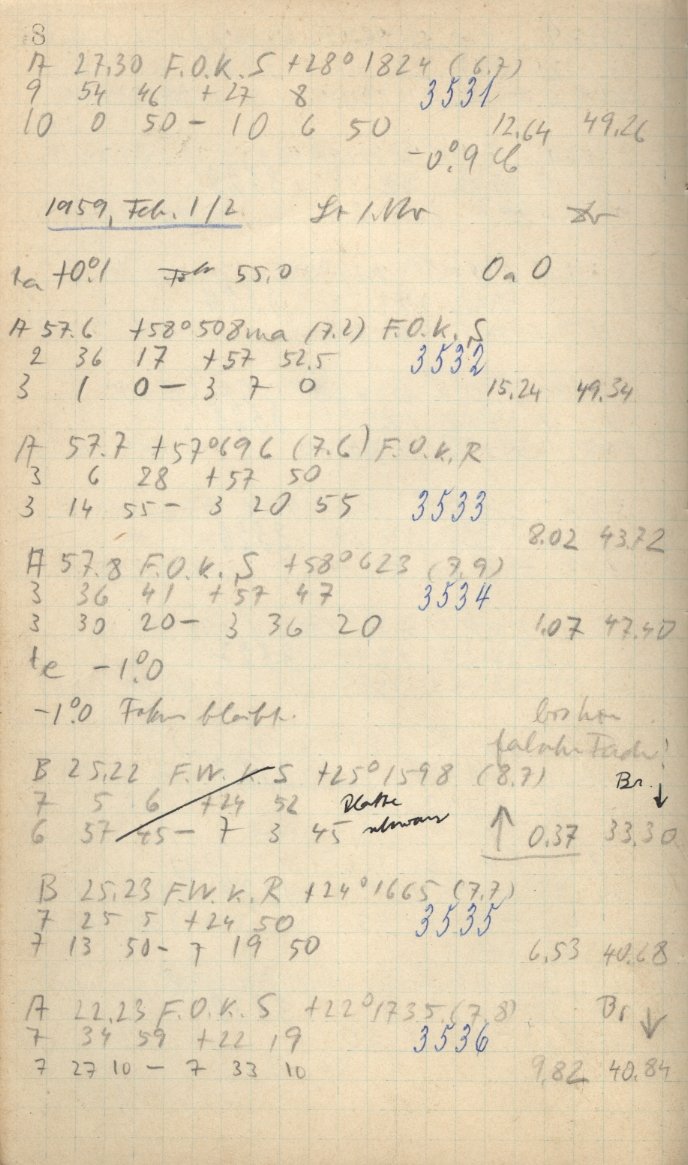 8
A 27.30 F.O.K.S +28°1824 (6.7)
9 54 46 +27 8 3531
10 0 50 – 10 6 50 12.64 49.26
-0°.9
1959, Feb. 1/2
ta +0°.1 55.0 0a0
A 57.6 +58°508ma (7.2) F.O.K.S
2 36 17 +57 52.5 3532
3 1 0 – 3 7 0 15.24 49.34
A 57.7 +57°696 (7.6) F.O.K.R
3 6 28 +57 50
3 14 55 – 3 20 55 3533
8.02 43.72
A 57.8 F.O.K.S +58°623 (7.9)
3 36 41 +57 47 3534
3 30 20 – 3 36 20 1.07 47.40
te -1°.0
-1°.0 Fokus bleibt.
B 25.22 F.W.K.S +25°1598 (8.7)
7 5 6 +24 52 Platte Br. ↓
6 57 45 – 7 3 45 schwarz ↑ 0.37 33.30
B 25.23 F.W.K.R +24°1665 (7.7)
7 25 5 +24 50 3535
7 13 50 – 7 19 50 6.53 40.68
A 22.23 F.O.K.S +22°1735 (7.8) Br ↓
7 34 59 +22 19 3536
7 27 10 – 7 33 10 9.82 40.84